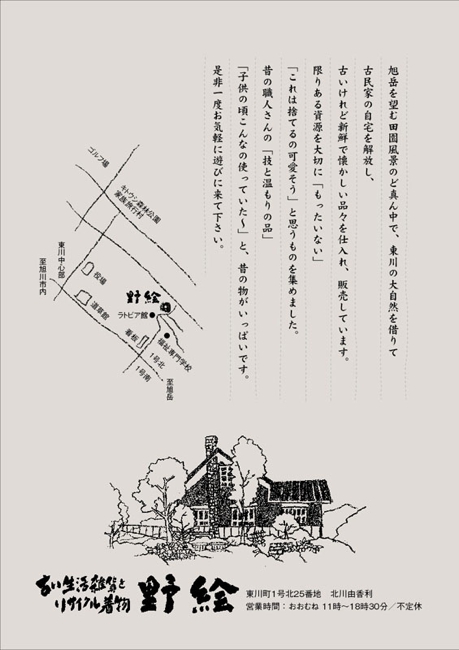 旭岳を望む田園風景のど真ん中で、東川の大自然を借りて
古民家の自宅を解放し、
古いけれど新鮮で懐かしい品々を仕入れ、販売しています。
限りある資源を大切に「もったいない」
「これは捨てるの可愛そう」と思うものを集めました。
昔の職人さんの「技と温もりの品」
「子供の頃こんなの使っていた〜」と、昔の物がいっぱいです。
是非一度お気軽に遊びに来て下さい。
ゴルフ場
キトウシ森林公園
家族旅行村
東川中心部
至旭川市内
役場
道草館
野絵
ラトビア館
看板
福祉専門学校
1号北
1号南
至旭岳
古い生活雑貨と
リサイクル着物
野絵
東川町1号北25番地 北川由香利
営業時間：おおむね 11時〜18時30分／不定休